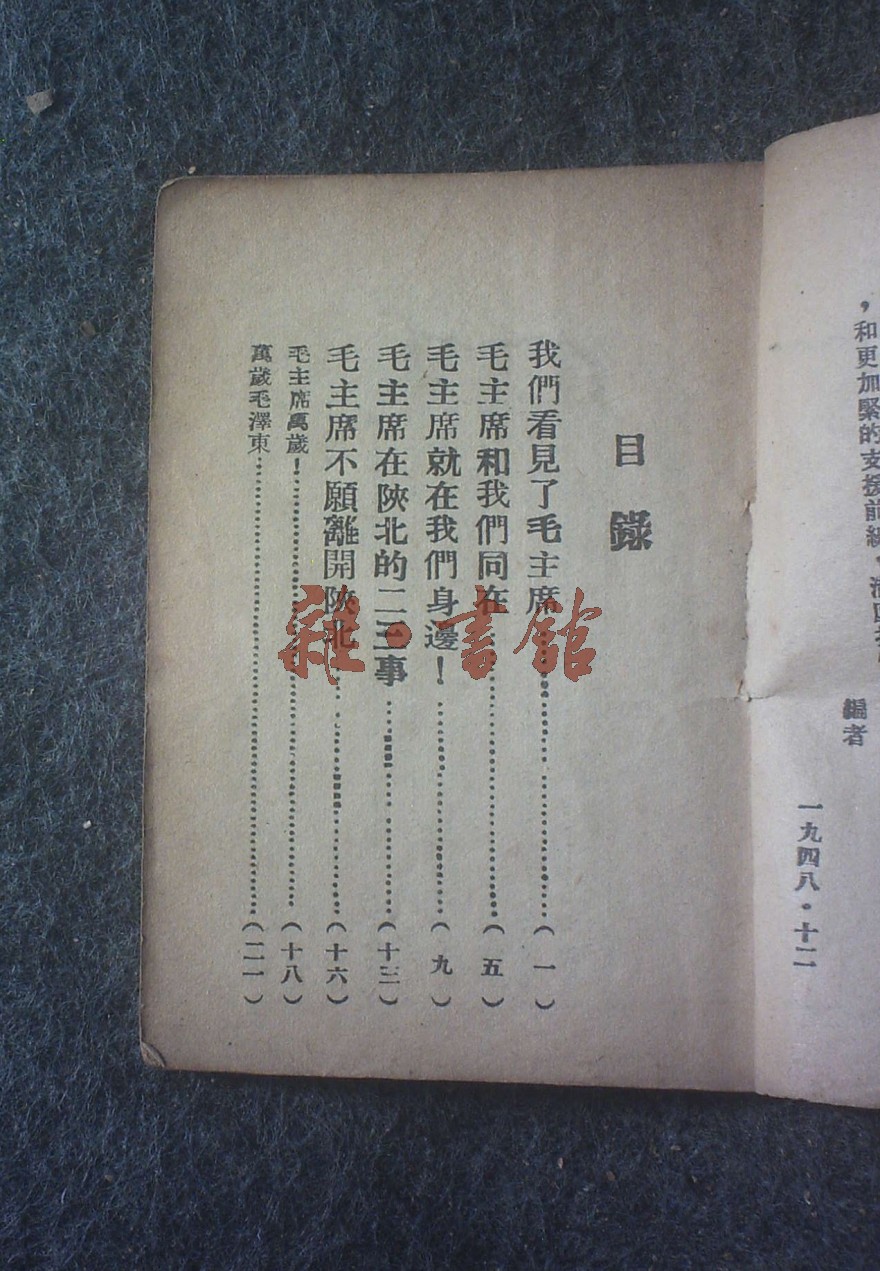 ，和更加緊的支援前線
編者
一九四八・十二
目錄
我們看見了毛主席……（一）
毛主席和我們同在……（五）
毛主席就在我們身邊！……（九）
毛主席在陝北的二三事……（十三）
毛主席不願離開陝北……（十六）
毛主席萬歲！……（十八）
萬歲毛澤東……（二一）
雜・書館